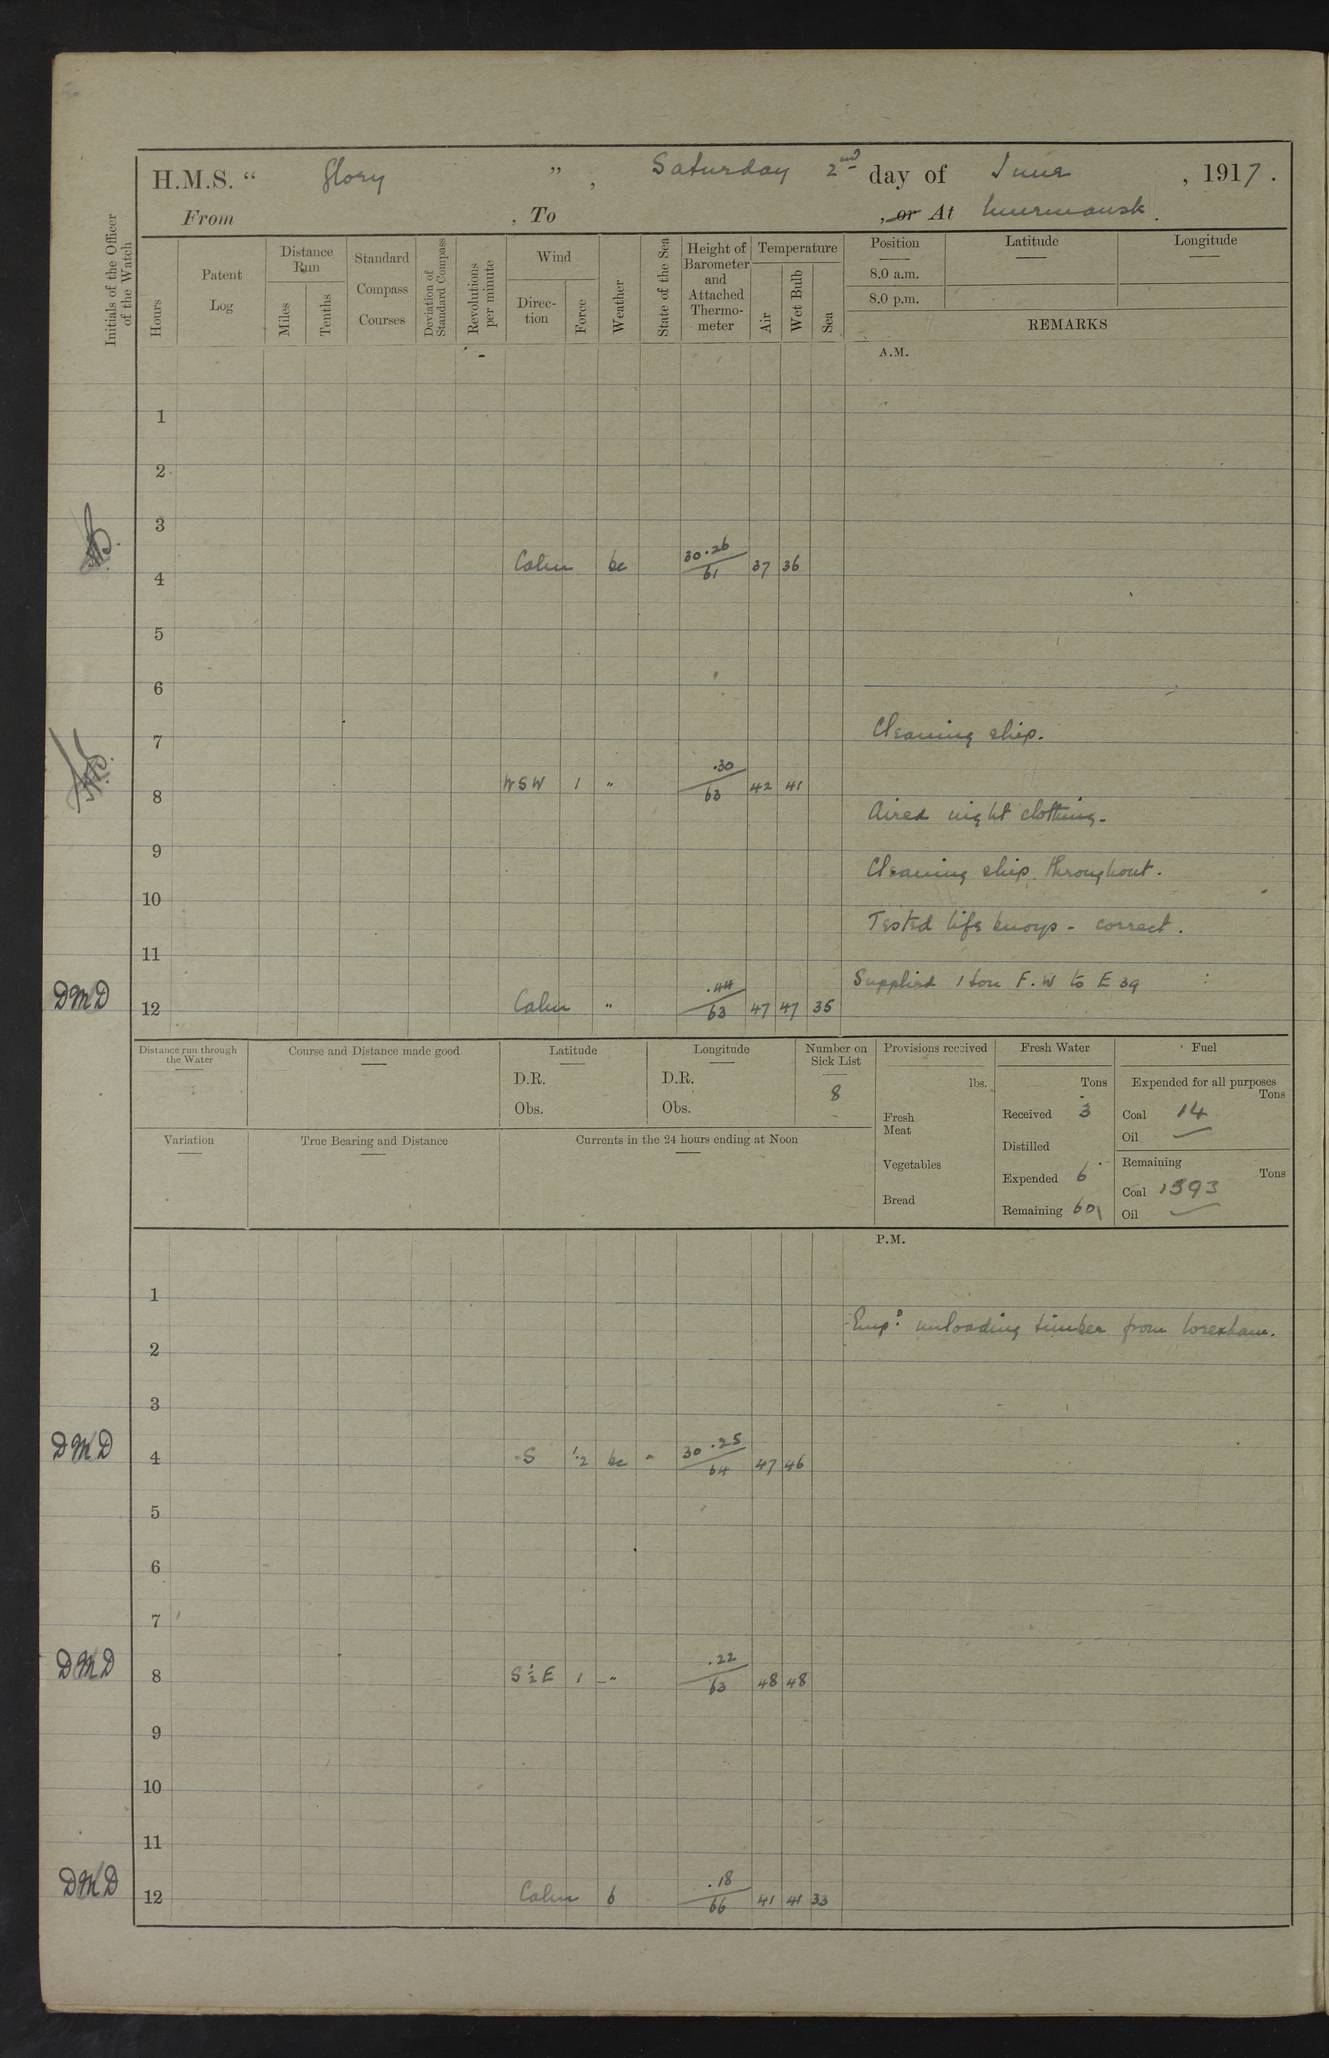 H.M.S. “ Glory ” , Saturday 2nd day of June , 1917.
From , To , or At Murmansk.
Initials of the Officer of the Watch
Hours
Patent Log
Distance Run
Miles
Tenths
Standard Compass Courses
Deviation of Standard Compass
Revolutions per minute
Wind
Direc-tion
Force
Weather
State of the Sea
Height of Barometer and Attached Thermo-meter
Temperature
Air
Wet Bulb
Sea
Position
8.0 a.m.
8.0 p.m.
Latitude
Longitude
REMARKS
A.M.
1
2
3
4 Calm bc 30.26 61 37 36
5
6
7 Cleaning ship.
8 WSW 1 " .30 63 42 41
Aired night clothing.
9 Cleaning ship throughout.
10 Tested life buoys - correct.
11
DMD 12 Calm " .44 63 47 47 35 Supplied 1 ton F.W to E 39
Distance run through the Water
Course and Distance made good
Latitude
D.R.
Obs.
Longitude
D.R.
Obs.
Number on Sick List
8
Variation
True Bearing and Distance
Currents in the 24 hours ending at Noon
Provisions received
lbs.
Fresh Meat
Vegetables
Bread
Fresh Water
Tons
Received 3
Distilled
Expended 6
Remaining 601
Fuel
Expended for all purposes
Tons
Coal 14
Oil —
Remaining
Tons
Coal 1393
Oil —
P.M.
1
Empd: unloading timber from Wrexham.
2
3
DMD 4 S 1.2 bc " 30.25 64 47 46
5
6
7
DMD 8 S½E 1 " .22 63 48 48
9
10
11
DMD 12 Calm b .18 66 41 41 33